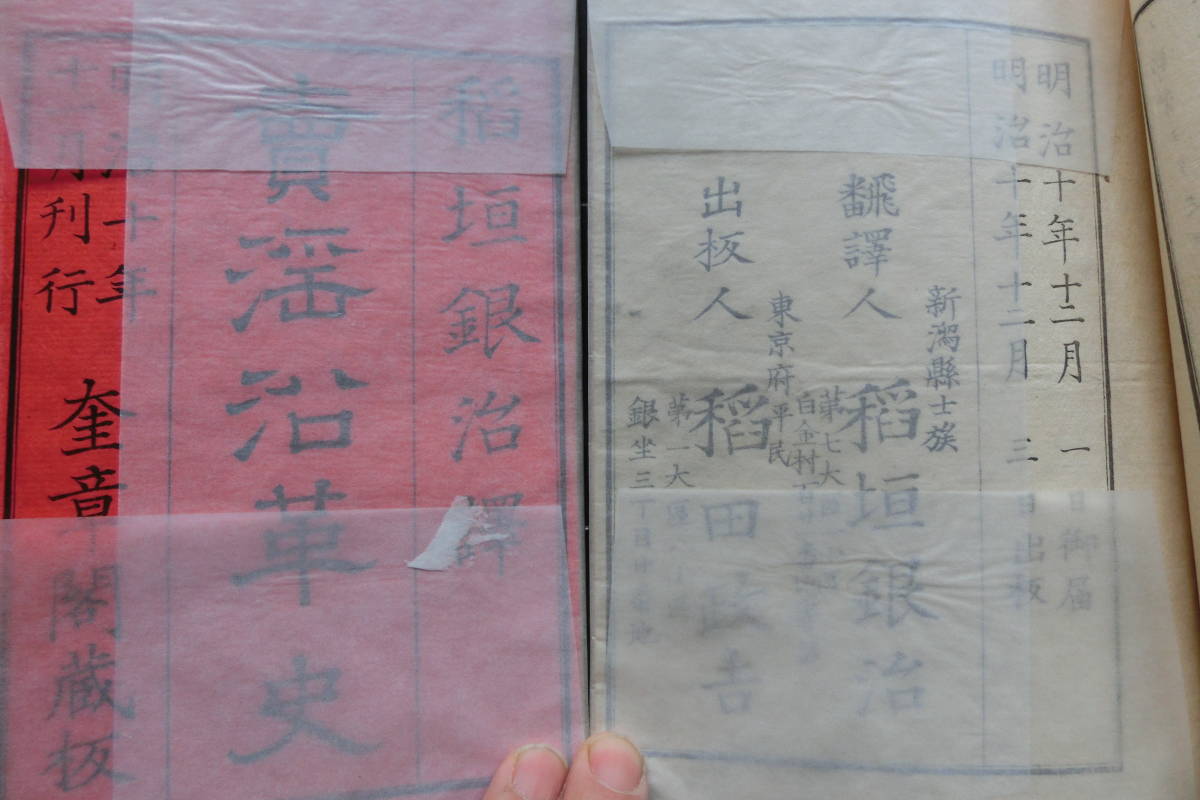 明治十年十二月 一日御届
明治十年十二月 三日出板
新潟縣士族
飜譯人 稻垣銀治
第七大
白金村
東京府平民
出板人 稻田政吉
第一大區
銀坐三丁目
稻垣銀治譯
賣淫沿革史
明治十年
十二月刊行 奎章閣蔵板